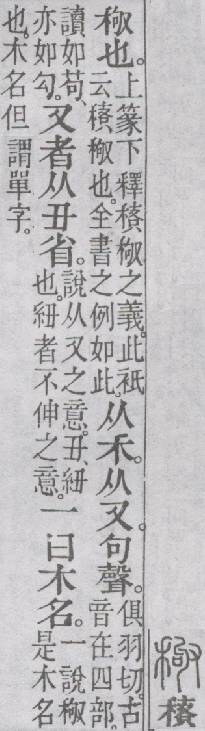 𥠻䅩
𥠻也。
上篆下釋䅩𥠻之義。此祇
云䅩𥠻也。全書之例如此。
从禾。从又。句聲。
俱羽切。古
音在四部。
讀如苟、
亦如勾。
又者从丑省。
說从又之意。丑、紐
也。紐者不伸之意。
一曰木名。
一說𥠻
是木名
也。木名但謂單字。